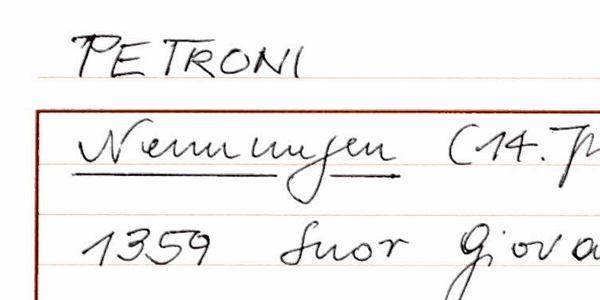 PETRONI
Nennungen (14.
1359 Suor Giova